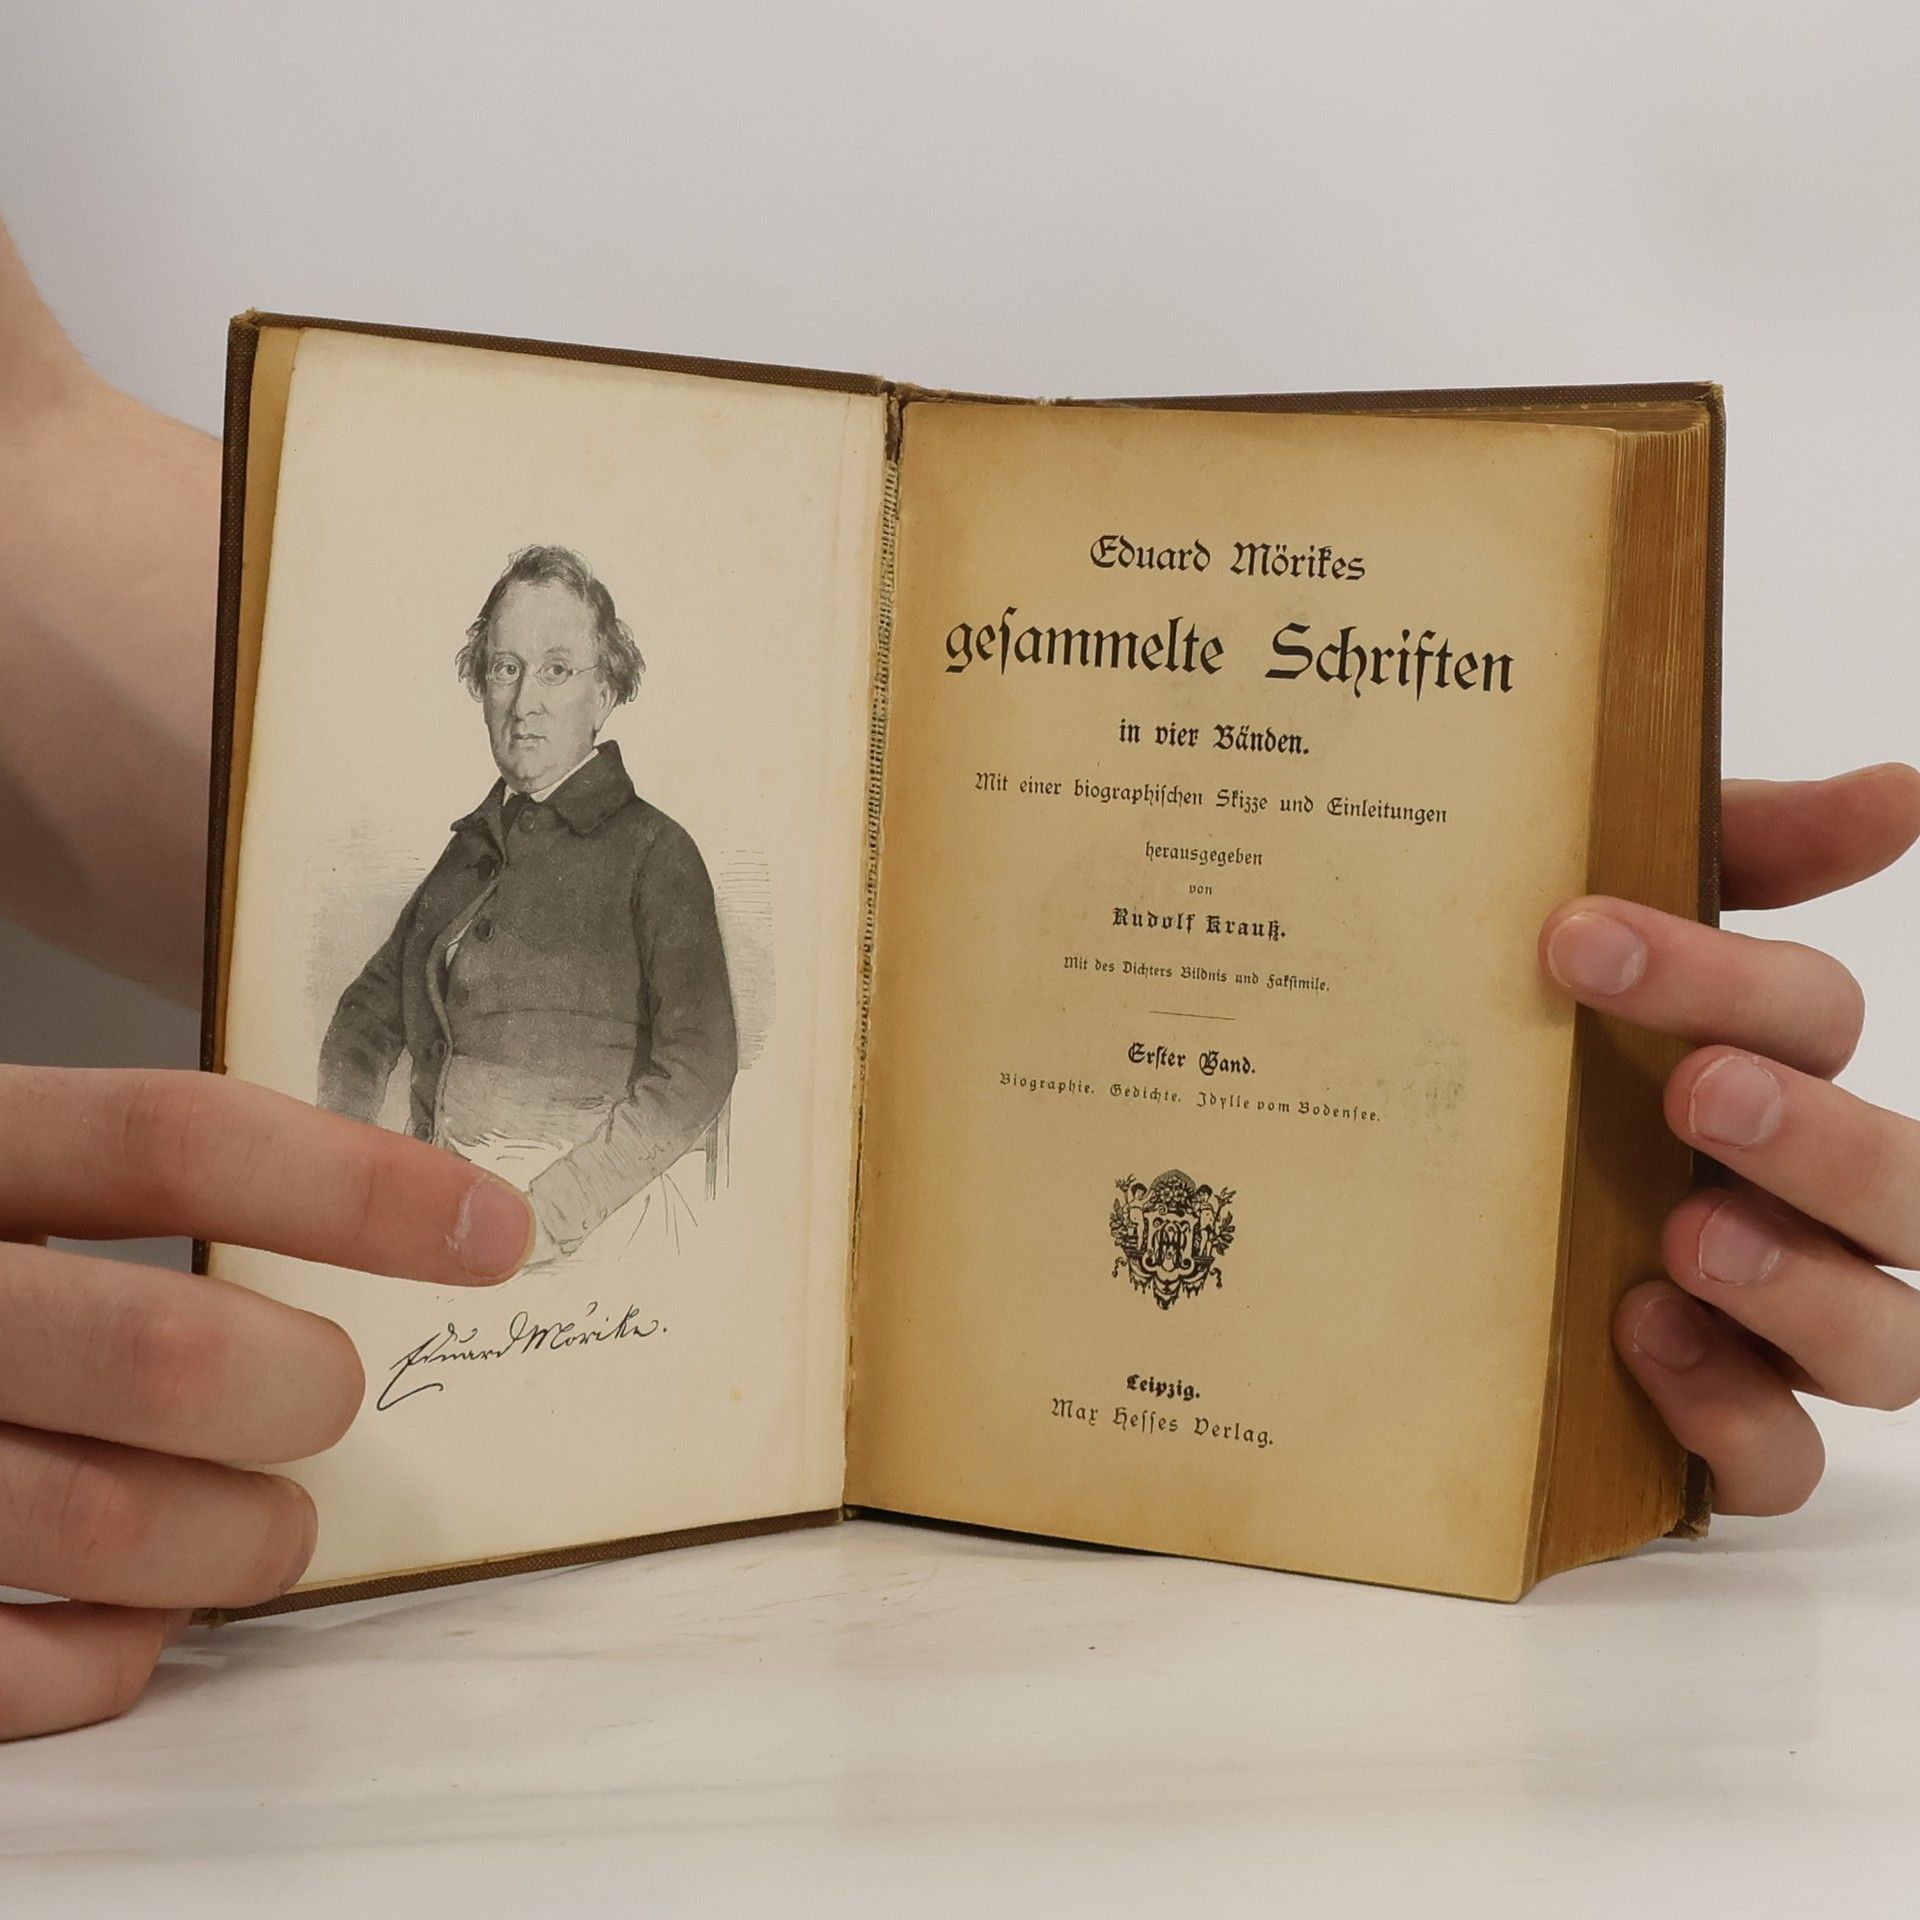 Eduard Mörike.
Eduard Mörikes
gesammelte Schriften
in vier Bänden.
Mit einer biographischen Skizze und Einleitungen
herausgegeben
von
Rudolf Krauß.
Mit des Dichters Bildnis und Faksimile.
Erster Band.
Biographie. Gedichte. Idylle vom Bodensee.
Leipzig.
Max Hesses Verlag.